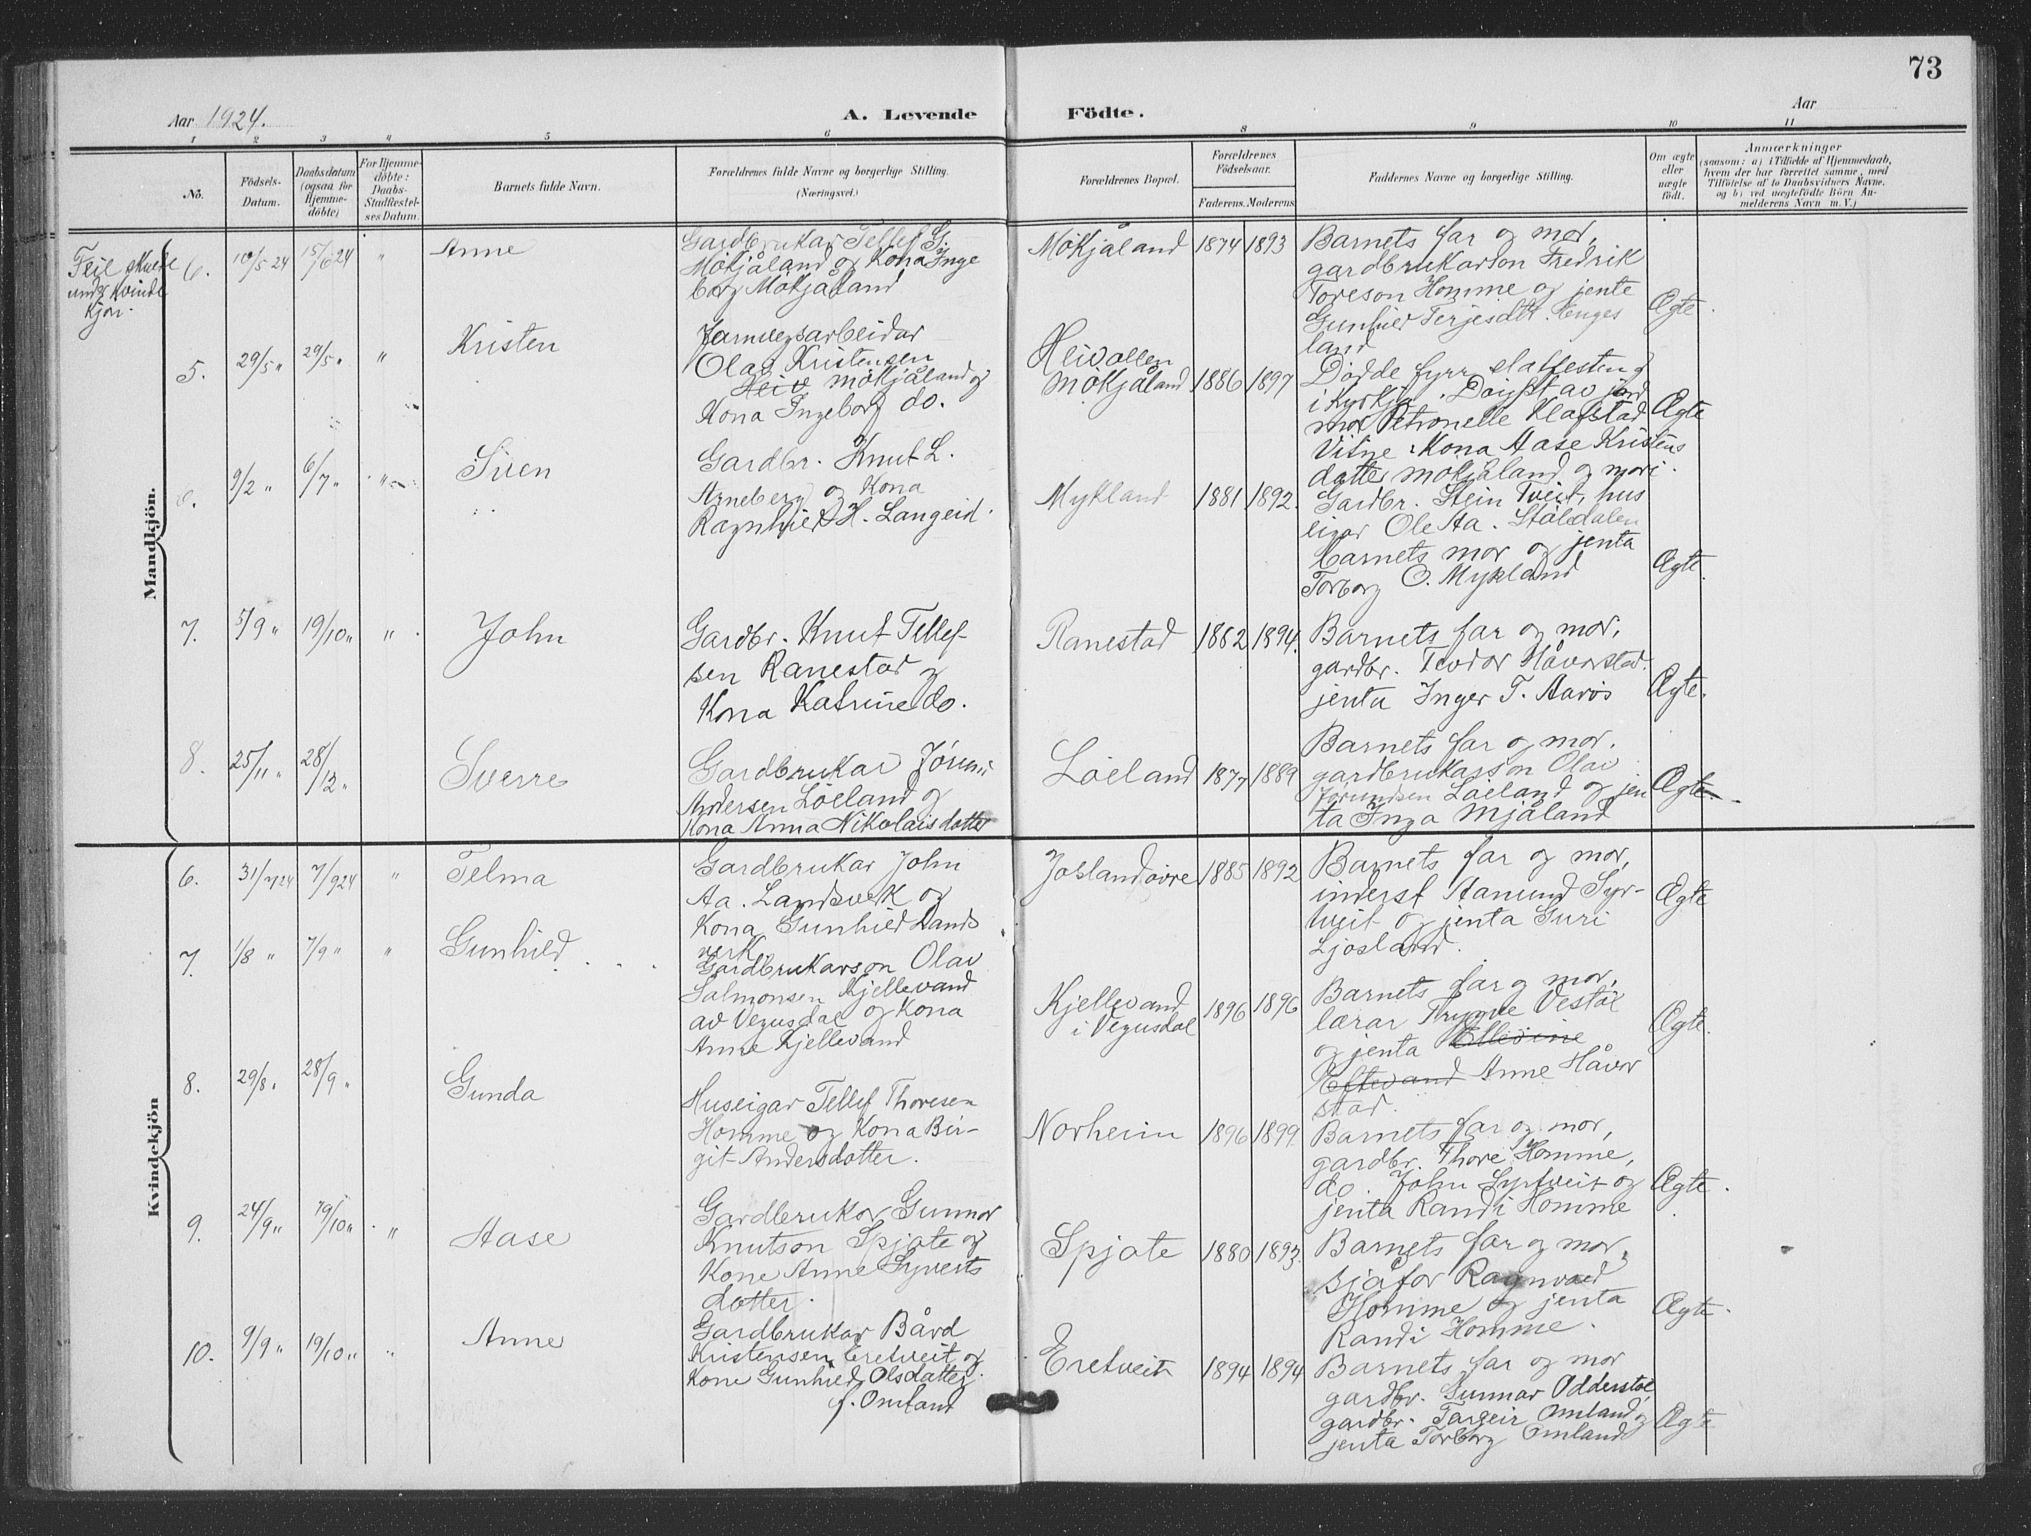 73
Aar 1924.
A. Levende
Födte.
Aar
1 2 3 4 5 6 8 9 10 11
No.
Födsels-
Datum.
Daabsdatum
(ogsaa for
Hjemme-
döbte)
For Hjemme-
döbte:
Daabs-
Stadfæstel-
ses Datum.
Barnets fulde Navn.
Forældrenes fulde Navne og borgerlige Stilling.
(Næringsvei.)
Forældrenes Bopæl.
Forældrenes
Födselsaar.
Faderens. Moderens
Faddernes Navne og borgerlige Stilling.
Om ægte
eller
uægte
födt.
Anmærkninger
(saasom: a) i Tilfælde af Hjemmedaab,
hvem der har forrettet samme, med
Tilföielse af to Daabsvidners Navne,
og b) ved uægtefödte Börn An-
melderens Navn m. V.)
Mandkjön.
Feil skulde
under kvinde
kjön.
6. 10/5 24 15/6 24 " Anne
Gardbrukar Tellef G.
Mökjåland og Kona Inge
borg Mökjåland
Mökjåland 1874 1893
Barnets far og mor,
gardbrukarson Fredrik
Toreson Homme og jente
Gunhild Terjesdtr. Enges
land
Ægte.
5. 29/5 " 29/5 " " Kristen
Jarnvegsarbeidar
Olav Kristensen
Heiv Mökjåland og
Kona Ingeborg do.
Heivollen
Mökjåland 1886 1897
Dödde fyrr stadfesting
i kyrkja. Döypt av jord
mor Petronelle Klafstad
Vitne: Kona Aase Kristens
datter Mökjåland og mori.
Ægte
6. 9/2 " 6/7 " " Sven
Gardbr. Knut L.
Arneberg og Kona
Ragnhild H. Langeid.
Mykland 1881 1892.
Gardbr. Stein Tveit, hus
eigar Ole Aa. Stöledalen
barnets mor og jenta
Torborg O. Mykland
Ægte.
7. 5/9 " 19/10 " " John
Gardbr. Knut Tellef-
sen Ranestad og
Kona Katrine do.
Ranestad 1882 1894.
Barnets far og mor,
gardbr. Teodor Håverstad.
jenta Inger T. Aarös
Ægte.
8. 25/11 " 28/12 " Sverre
Gardbrukar Jörun
Andersen Löeland og
Kona Anna Nikolaisdatter
Löeland 1877 1889
Barnets far og mor.
gardbrukarson Olav
Jörundsen Löeland og jen
ta Inga Mjåland
Ægte.
Kvindekjön
6. 31/7 24 7/9 24 " Telma
Gardbrukar John
Aa. Landsverk og
Kona Gunhild Lands
verk
Joslandöivre 1885 1892
Barnets far og mor,
inderst Aamund Syr-
tveit og jenta Guri
Ljosland.
Ægte
7. 1/8 " 7/9 " " Gunhild
Gardbrukarson Olav
Salmonsen Kjellevand
av Vegusdal og Kona
Anne Kjellevand
Kjellevand
i Vegusdal 1896 1896
Barnets far og mor,
lærar Trygve Vestöl
og jenta Ellevine
Eftevand Anne Håver
stad.
Ægte.
8. 29/8 " 28/9 " Gunda
Huseigar Tellef Thoresen
Homme og Kona Bir-
git Andersdotter.
Norheim 1896 1899
Barnets far og mor,
gardbr. Thore Homme,
do. John Syrtveit og
jenta Randi Homme
Ægte.
9. 24/9 " 19/10 " " Aase
Gardbrukar Gunnar
Knutson Spjote og
Kone Anne Syverts
dotter.
Spjote 1880 1893.
Barnets far og mor,
sjåfør Ragnvald
Homme og jenta
Randi Homme.
Ægte.
10. 9/9 " 19/10 " " Anne
Gardbrukar Bård
Kristensen Eretveit og
Kone Gunhild Olsdatter
f. Omland
Eretveit 1894 1894
Barnets far og mor
gardbr. Gunnar Odderstöl,
gardbr. Targeir Omland og
jenta Torborg Omland
Ægte